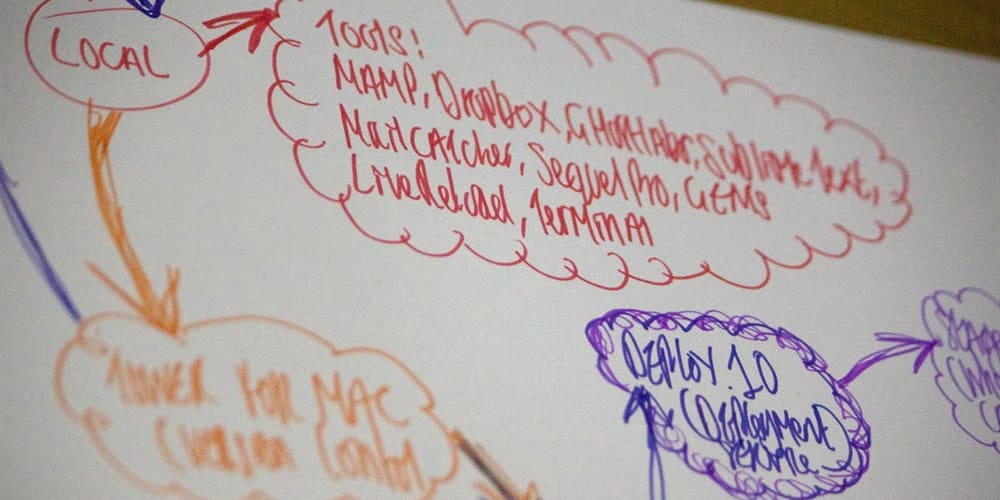 LOCAL
Tools!
MAMP, Dropbox, GHostlab, Sublime Text,
MailCatcher, Sequel Pro, GEMS
LiveReload, Terminal
TOWER FOR MAC
(Version Control
DEPLOY.IO
(Deployment